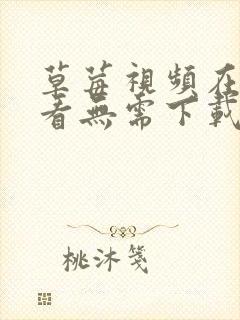 草莓視頻在
看無需下載
桃沐箋